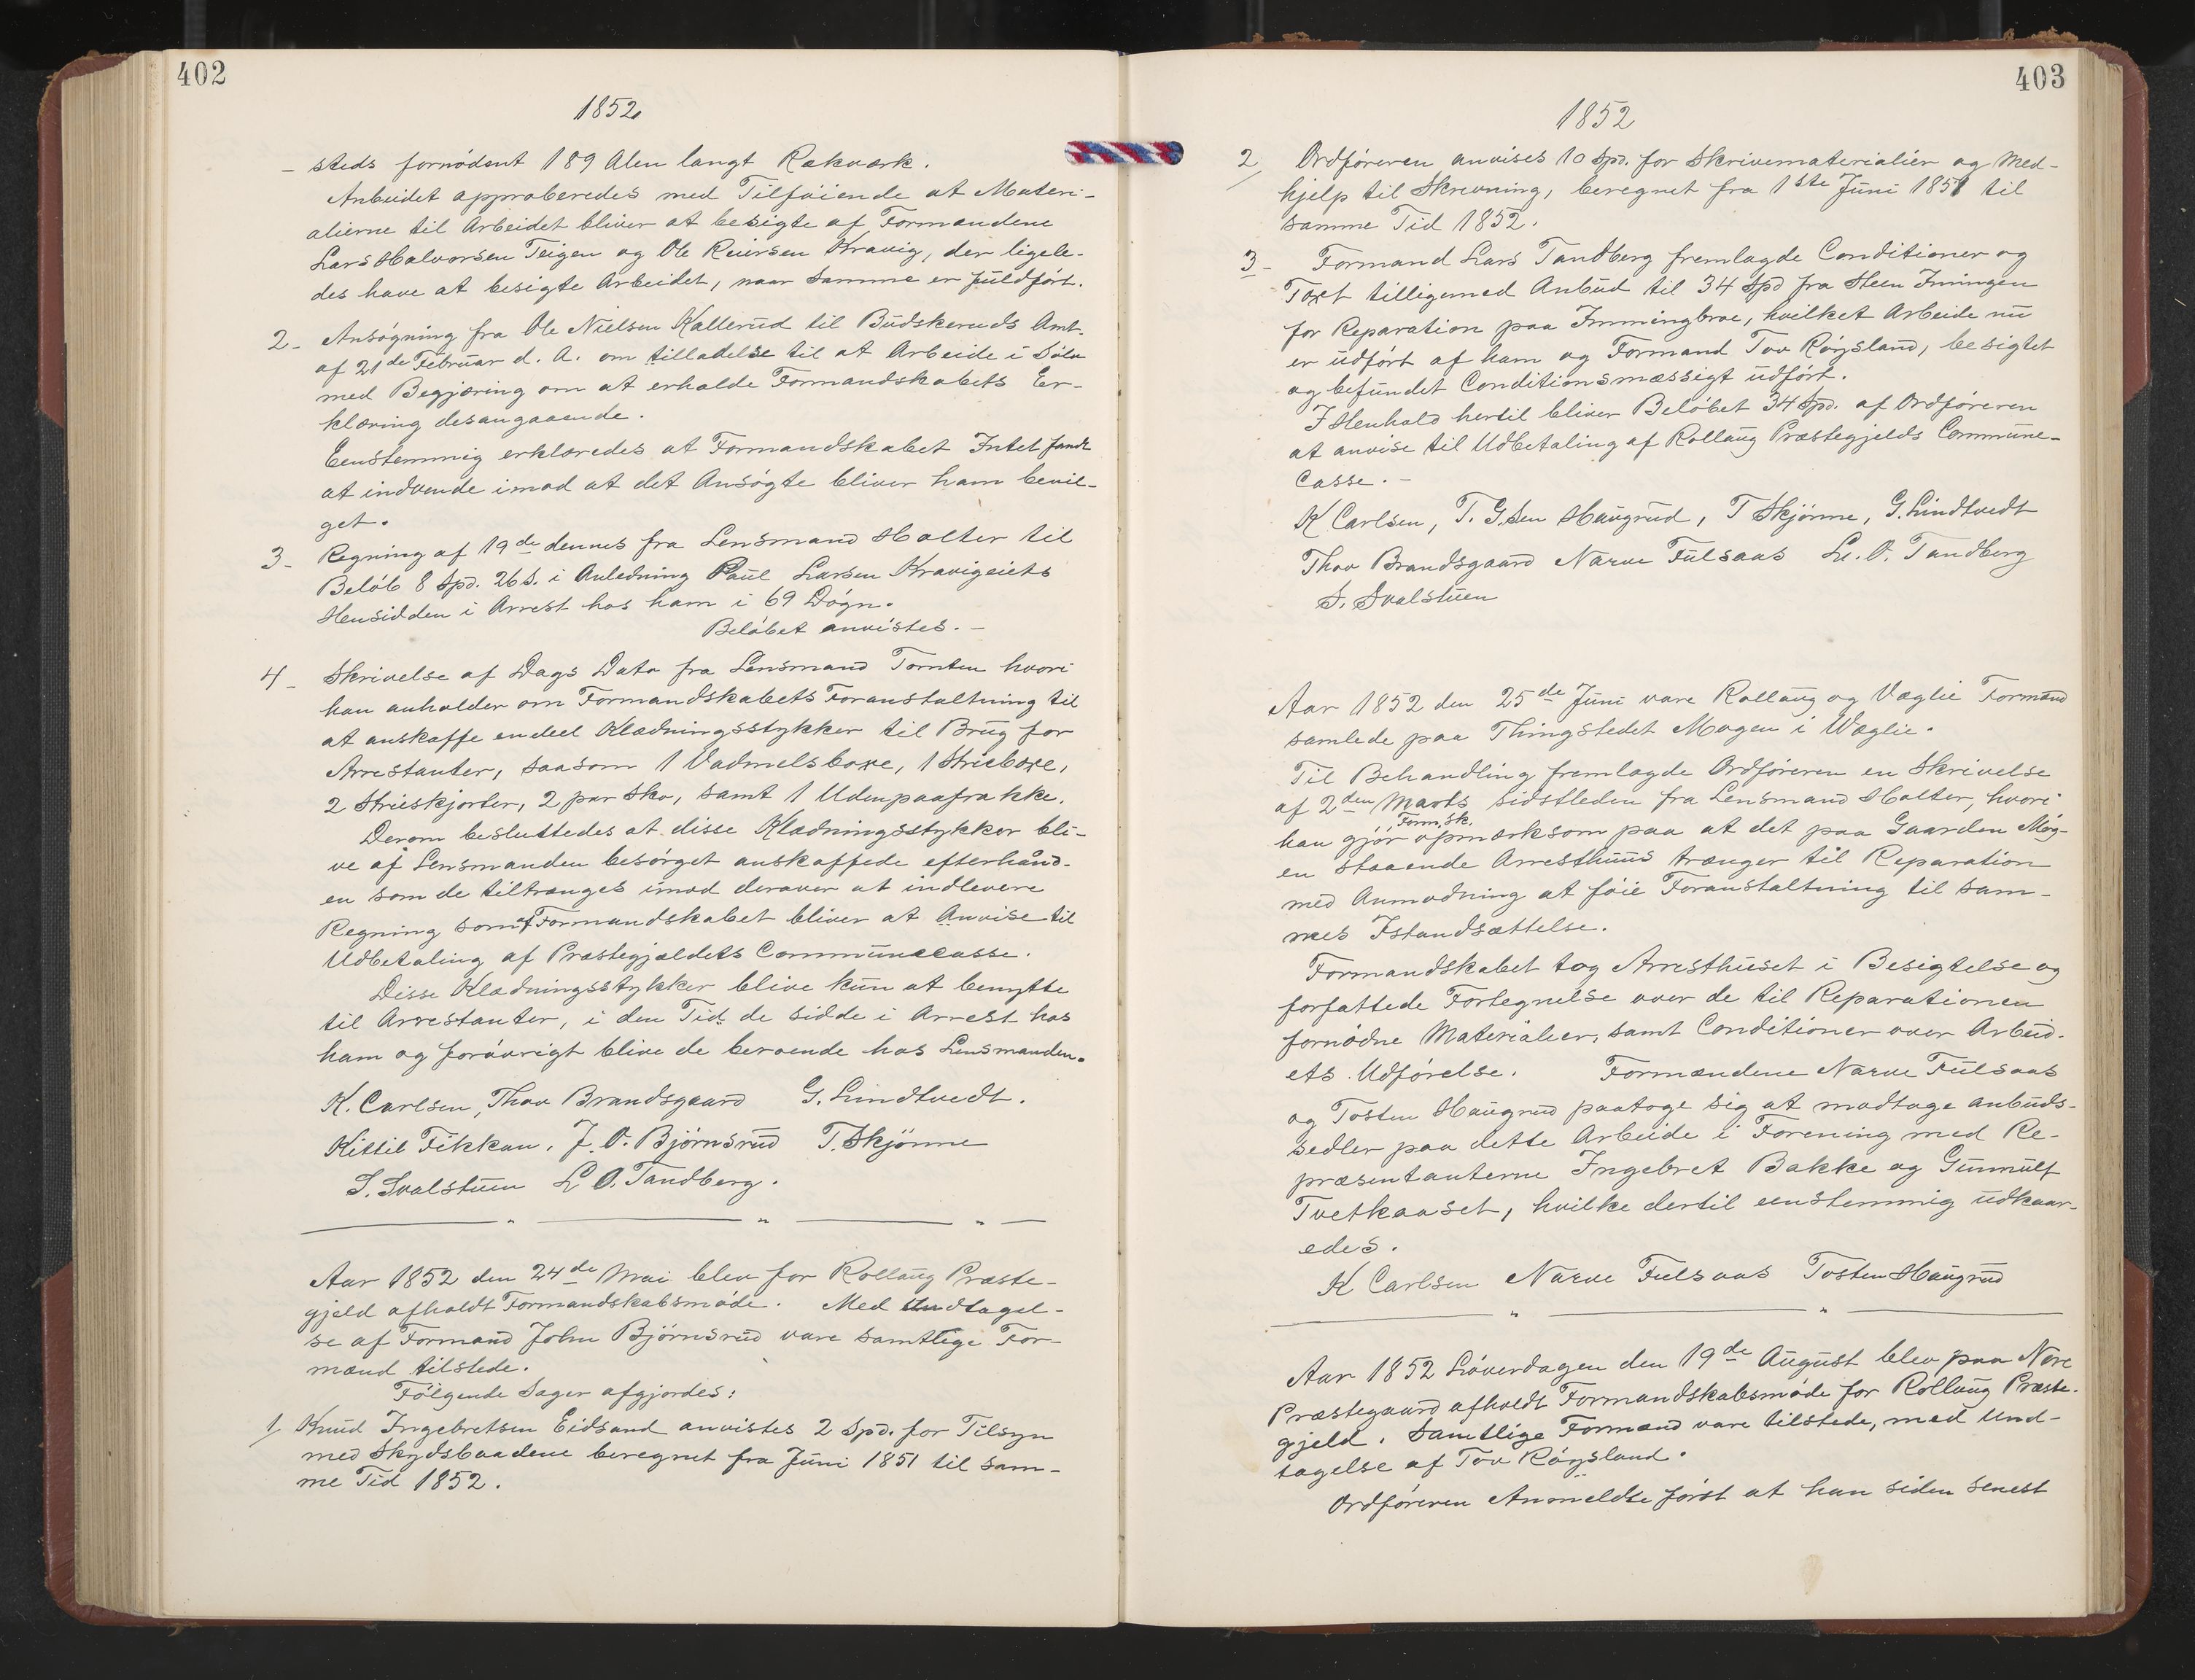 402
1852
- steds fornödent 189 Alen langt Rækværk.
Anbudet approberedes med Tilföiende at Materi-
alierne til Arbeidet bliver at besigte af Formændene
Lars Halvorsen Teigen og Ole Reiersen Kravig, der ligele-
des have at besigte Arbeidet, naar Samme er fuldfört.
2- Ansögning fra Ole Nielsen Kallerud til Budskeruds Amt
af 21de Februar d. A. om tilladelse til at Arbeide i Sölv
med Begjæring om at erholde Formandskabets Er-
klæring desangaaende.
Eenstemmig erklæredes at Formandskabet Intet fandt
at indvende imod at det Ansögte bliver ham bevil-
get.
3- Regning af 19de dennes fra Lensmand Holter til
Belöb 8 Spd. 26 S. i Anledning Paul Larsen Kravigeiets
Hensidden i Arrest hos ham i 69 Dögn.
Belöbet anvistes. -
4- Skrivelse af Dags Dato fra Lensmand Tornten hvori
han anholder om Formandskabets Foranstaltning til
at anskaffe endeel Klædningsstykker til Brug for
Arrestanter, saasom 1 Vadmelsboxe, 1 Strieboxe,
2 Strieskjorter, 2 par Sko, samt 1 Udenpaafrakke.
Derom besluttedes at disse Klædningsstykker bli-
ve af Lensmanden besörget anskaffede efterhaand-
en som de tiltrænges imod derover at indlevere
Regning som af Formandskabet bliver at Anvise til
Udbetaling af Præstegjældets Communecasse.
Disse Klædningsstykker blive kun at benytte
til Arrestanter, i den Tid de sidde i Arrest hos
ham og forövrigt blive de beroende hos Lensmanden.
K. Carlsen, Thov Brandsgaard G. Lindtvedt.
Kittil Fikkan. J. O. Björnsrud T. Skjönne
S. Svalstuen L O. Tandberg.
Aar 1852 den 24de Mai blev for Rollaug Præste-
gjeld afholdt Formandskabsmöde. Med Undtagel-
se af Formand John Björnsrud vare samtlige For-
mænd tilstede.
Fölgende Sager afgjordes:
1/ Knud Ingebretsen Eidsand anvistes 2 Spd. for Tilsyn
med Skydsbaadene beregnet fra Juni 1851 til sam-
me Tid 1852.
403
1852
2/ Ordföreren anvises 10 Spd. for Skrivematerialier og Med-
hjelp til Skrivning, beregnet fra 1ste Juni 1851 til
samme Tid 1852.
3- Formand Lars Tandberg fremlagde Conditioner og
Taxt tilligemed Anbud til 34 Spd fra Steen Imingen
for Reparation paa Immingbroe, hvilket Arbeide nu
er udfört af ham og Formand Tov Röysland, besigtet
og befundet Conditionsmæssigt udfört.
I Henhold hertil bliver Belöbet 34 Spd. af Ordföreren
at anvise til Udbetaling af Rollaug Præstegjelds Commune-
casse. -
K Carlsen, T. G.sen Haugrud, T Skjönne, G. Lindtvedt
Thov Brandsgaard Narve Fulsaas L. O. Tandberg
S. Svalstuen
Aar 1852 den 25de Juni vare Rollaug og Væglie Formænd
samlede paa Thingstedet Mogen i Wæglie.
Til Behandling fremlagde Ordföreren en Skrivelse
af 2den Marts sidstleden fra Lensmand Holter, hvori
Form.sk.
han gjör opmærksom paa at det paa Gaarden Mög-
en staaende Arresthuus trænger til Reparation
med Anmodning at föie Foranstaltning til sam-
mes Istandsættelse.
Formandskabet tog Arresthuset i Besigtelse og
forfattede Fortegnelse over de til Reparationen
fornödne Materialier, samt Conditioner over Arbeid-
ets Udförelse. Formændene Narve Fulsaas
og Tosten Haugrud paatoge sig at modtage anbuds-
sedler paa dette Arbeide i Forening med Re-
præsentanterne Ingebret Bakke og Gunnulf
Tvetkaaset, hvilke dertil eenstemmig udkaar-
edes.
K Carlsen Narve Fulsaas Tosten Haugrud
Aar 1852 Löverdagen den 19de August blev paa Nore
Præstegaard afholdt Formandskabsmöde for Rollaug Præste-
gjeld. Samtlige Formænd vare tilstede, med Und-
tagelse af Tov Röysland.
Ordföreren Anmeldte först at han siden senest